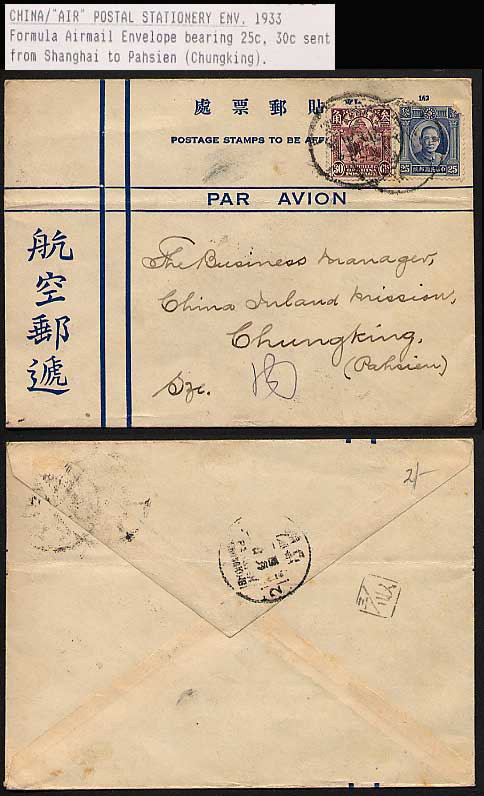 CHINA/"AIR" POSTAL STATIONERY ENV. 1933
Formula Airmail Envelope bearing 25c, 30c sent
from Shanghai to Pahsien (Chungking).
處票郵貼
POSTAGE STAMPS TO BE
30
25
25
PAR AVION
航空郵遞
The Business Manager,
China Inland Mission,
Chungking.
(Pahsien)
Sze.
2/-